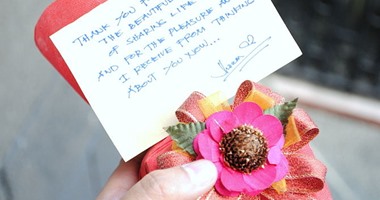 THANK YOU
THE BEAUTIFUL
OF SHARING LIFE
AND FOR THE PLEASURE
I RECEIVE FROM THINKING
ABOUT YOU NOW...